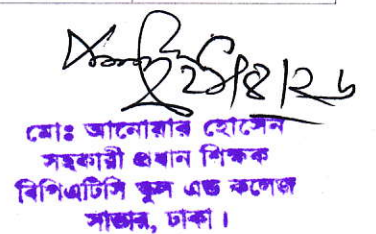 ২৯/৪/২৬
মোঃ আনোয়ার হোসেন
সহকারী প্রধান শিক্ষক
বিপিএটিসি স্কুল এন্ড কলেজ
সাভার, ঢাকা।